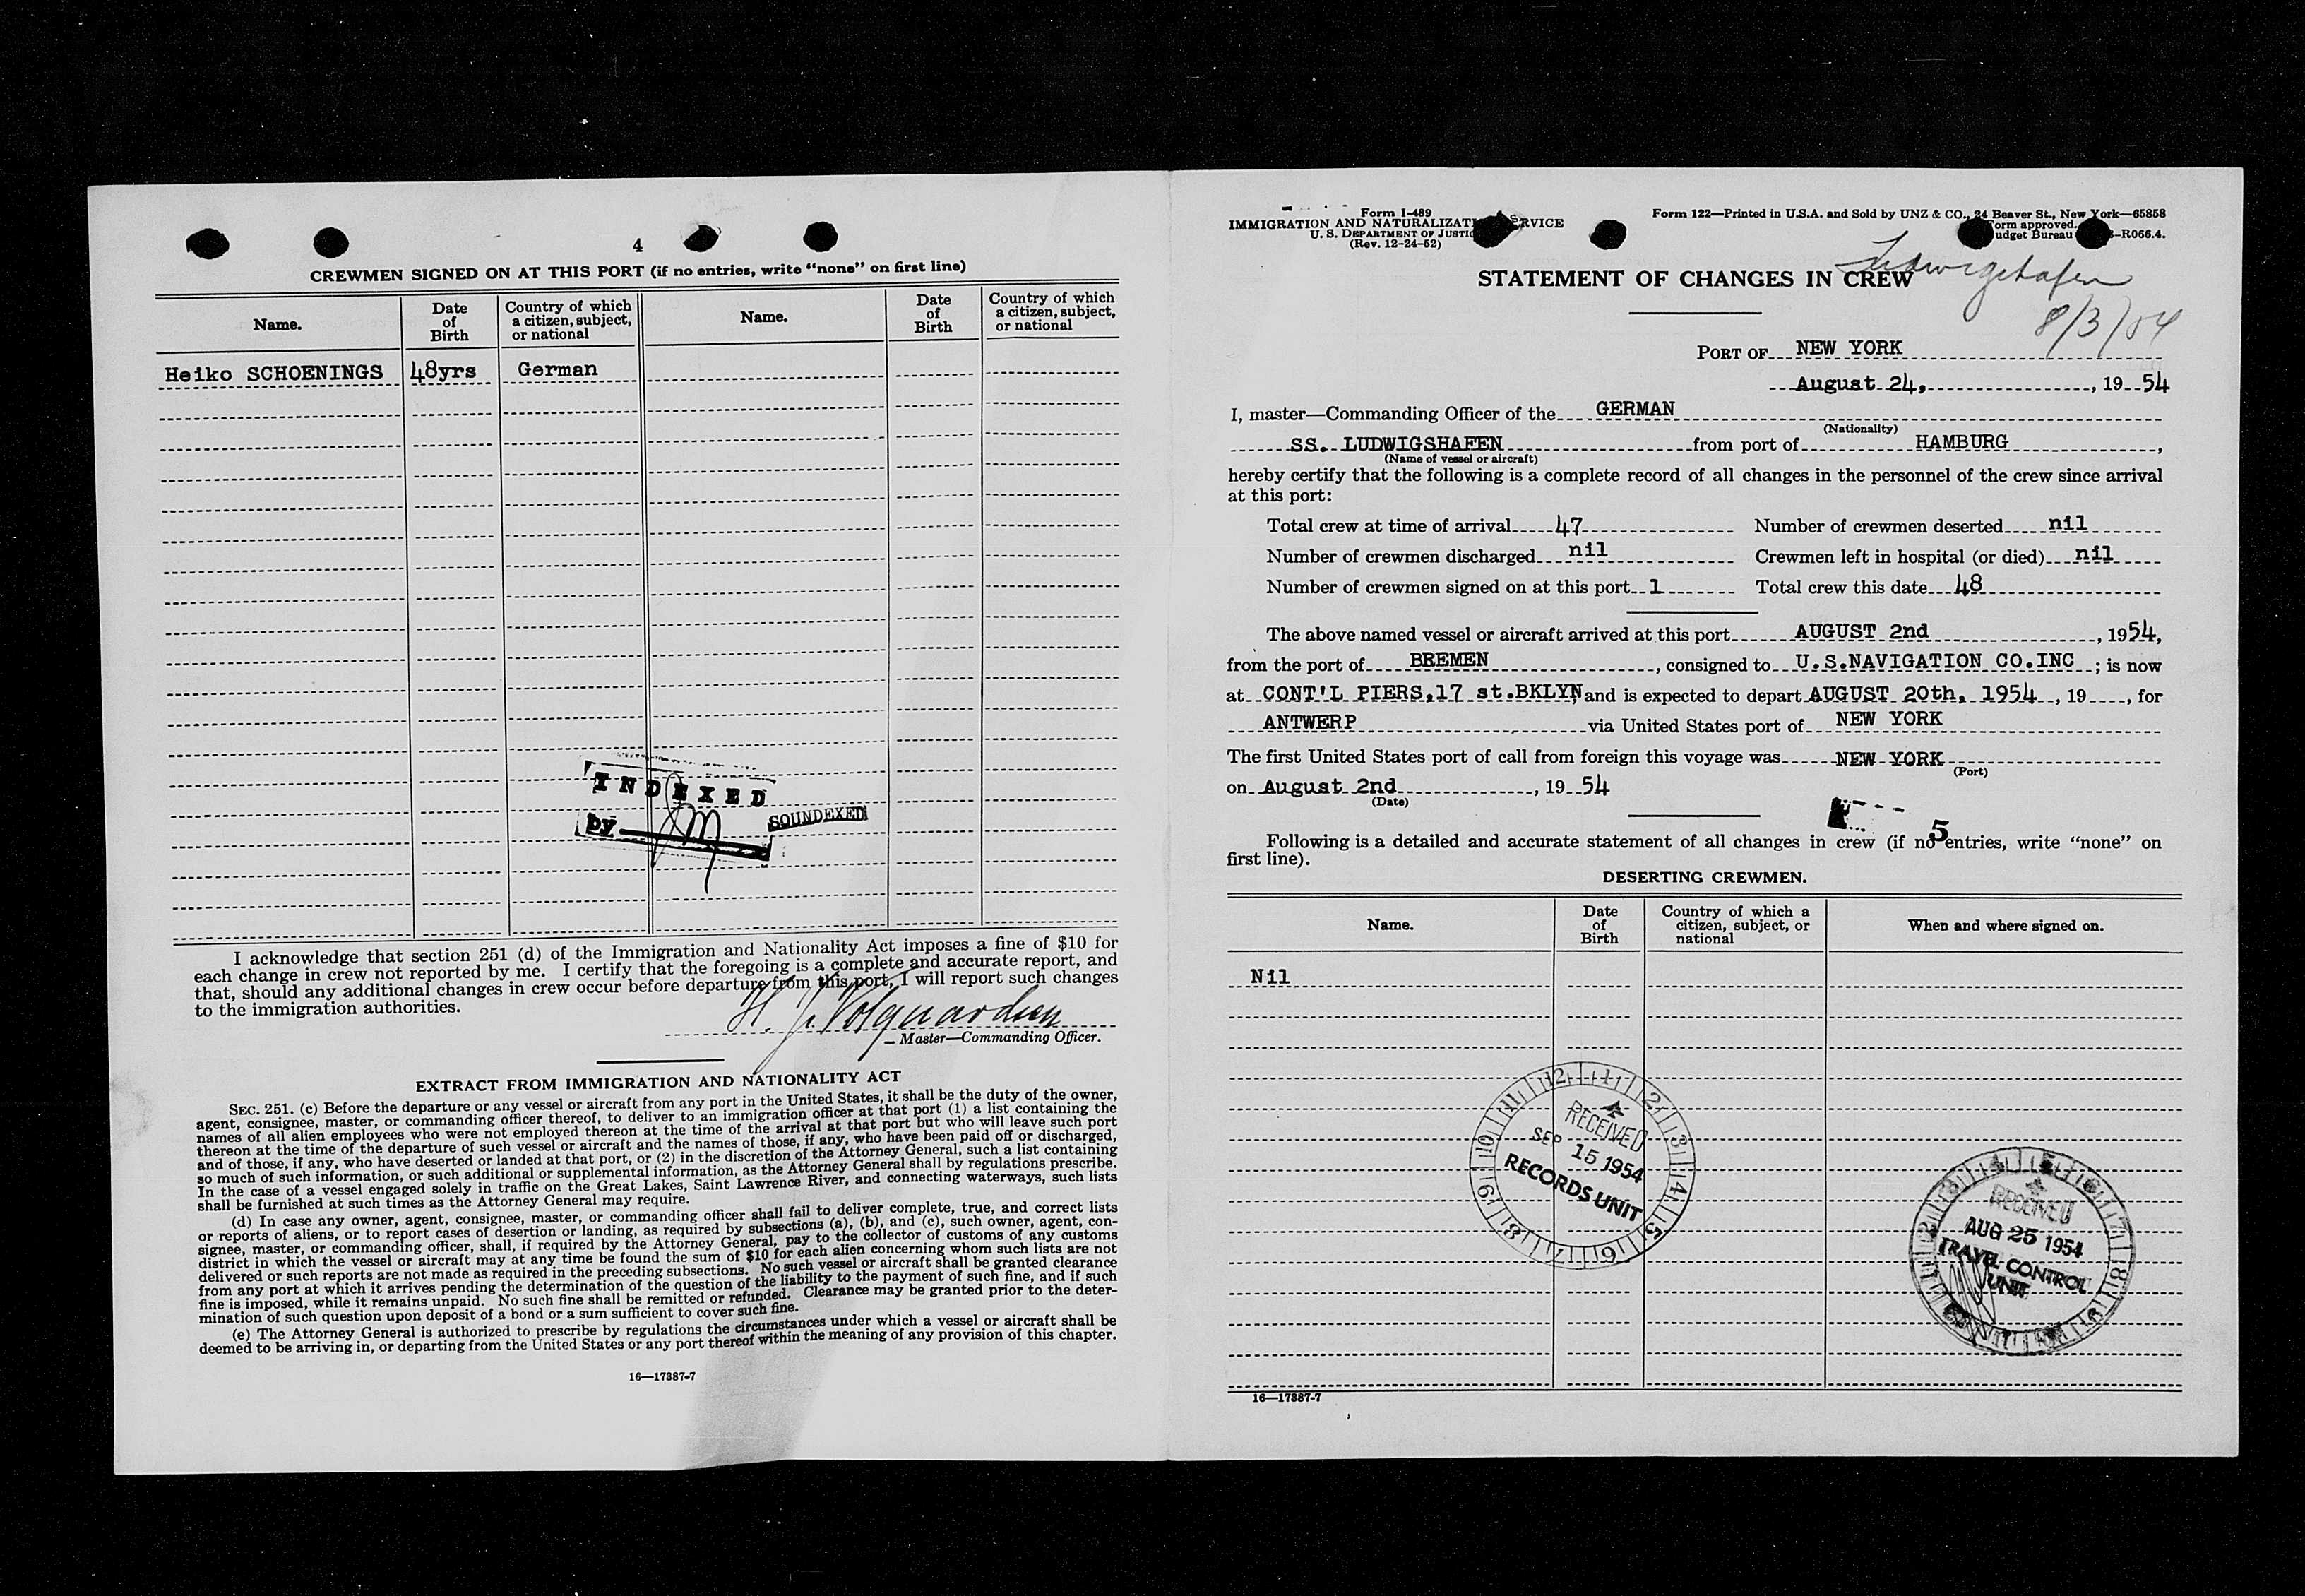 4
CREWMEN SIGNED ON AT THIS PORT (if no entries, write "none" on first line)
Name. Date of Birth Country of which a citizen, subject, or national Name. Date of Birth Country of which a citizen, subject, or national
Heiko SCHOENINGS 48yrs German
INDEXED
by
SOUNDEXED
I acknowledge that section 251 (d) of the Immigration and Nationality Act imposes a fine of $10 for
each change in crew not reported by me. I certify that the foregoing is a complete and accurate report, and
that, should any additional changes in crew occur before departure from this port, I will report such changes
to the immigration authorities.
H. J. Volquardsen
Master—Commanding Officer.
EXTRACT FROM IMMIGRATION AND NATIONALITY ACT
SEC. 251. (c) Before the departure or any vessel or aircraft from any port in the United States, it shall be the duty of the owner,
agent, consignee, master, or commanding officer thereof, to deliver to an immigration officer at that port (1) a list containing the
names of all alien employees who were not employed thereon at the time of the arrival at that port but who will leave such port
thereon at the time of the departure of such vessel or aircraft and the names of those, if any, who have been paid off or discharged,
and of those, if any, who have deserted or landed at that port, or (2) in the discretion of the Attorney General, such a list containing
so much of such information, or such additional or supplemental information, as the Attorney General shall by regulations prescribe.
In the case of a vessel engaged solely in traffic on the Great Lakes, Saint Lawrence River, and connecting waterways, such lists
shall be furnished at such times as the Attorney General may require.
(d) In case any owner, agent, consignee, master, or commanding officer shall fail to deliver complete, true, and correct lists
or reports of aliens, or to report cases of desertion or landing, as required by subsections (a), (b), and (c), such owner, agent, con-
signee, master, or commanding officer, shall, if required by the Attorney General, pay to the collector of customs of any customs
district in which the vessel or aircraft may at any time be found the sum of $10 for each alien concerning whom such lists are not
delivered or such reports are not made as required in the preceding subsections. No such vessel or aircraft shall be granted clearance
from any port at which it arrives pending the determination of the question of the liability to the payment of such fine, and if such
fine is imposed, while it remains unpaid. No such fine shall be remitted or refunded. Clearance may be granted prior to the deter-
mination of such question upon deposit of a bond or a sum sufficient to cover such fine.
(e) The Attorney General is authorized to prescribe by regulations the circumstances under which a vessel or aircraft shall be
deemed to be arriving in, or departing from the United States or any port thereof within the meaning of any provision of this chapter.
16—17387-7
Form I-489
IMMIGRATION AND NATURALIZATI RVICE
U. S. DEPARTMENT OF JUSTIC
(Rev. 12-24-52)
Form 122—Printed in U.S.A. and Sold by UNZ & CO., 24 Beaver St., New York—65858
orm approved.
udget Bureau -R066.4.
Ludwigshafen
8/3/54
STATEMENT OF CHANGES IN CREW
PORT OF NEW YORK
August 24, , 19 54
I, master—Commanding Officer of the GERMAN
(Nationality)
SS. LUDWIGSHAFEN from port of HAMBURG ,
(Name of vessel or aircraft)
hereby certify that the following is a complete record of all changes in the personnel of the crew since arrival
at this port:
Total crew at time of arrival 47 Number of crewmen deserted nil
Number of crewmen discharged nil Crewmen left in hospital (or died) nil
Number of crewmen signed on at this port 1 Total crew this date 48
The above named vessel or aircraft arrived at this port AUGUST 2nd , 1954,
from the port of BREMEN , consigned to U.S.NAVIGATION CO.INC ; is now
at CONT'L PIERS,17 st.BKLYN, and is expected to depart AUGUST 20th, 1954 , 19 , for
ANTWERP via United States port of NEW YORK
The first United States port of call from foreign this voyage was NEW YORK
(Port)
on August 2nd , 19 54
(Date)
5
Following is a detailed and accurate statement of all changes in crew (if no entries, write "none" on
first line).
DESERTING CREWMEN.
Name. Date of Birth Country of which a citizen, subject, or national When and where signed on.
Nil
RECEIVED
SEP 15 1954
RECORDS UNIT
RECEIVED
AUG 25 1954
TRAVEL CONTROL
UNIT
16—17387-7